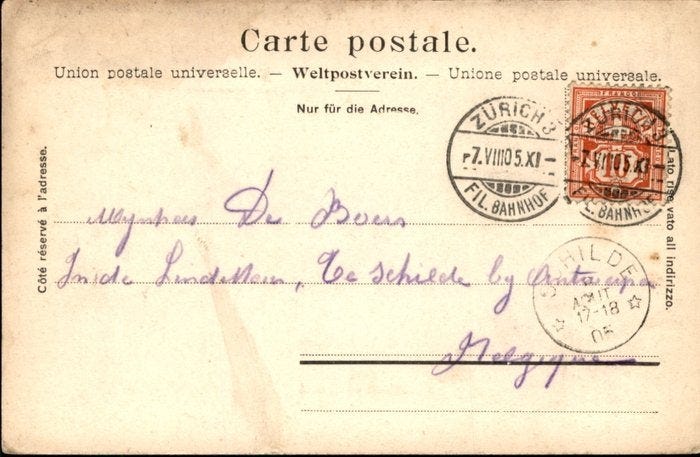 Carte postale.
Union postale universelle. — Weltpostverein. — Unione postale universale.
Nur für die Adresse.
FRANCO
ZÜRICH 3
-7.VIII05.XI-
FIL. BAHNHOF
ZÜRICH 3
-7.VIII05.XI-
FIL. BAHNHOF
Côté réservé à l'adresse.
Lato riservato all indirizzo.
Mynheer De Boers
In de Linde, Te Schilde by Antwerpen
Belgique
SCHILDE
8
AOUT
17-18
05